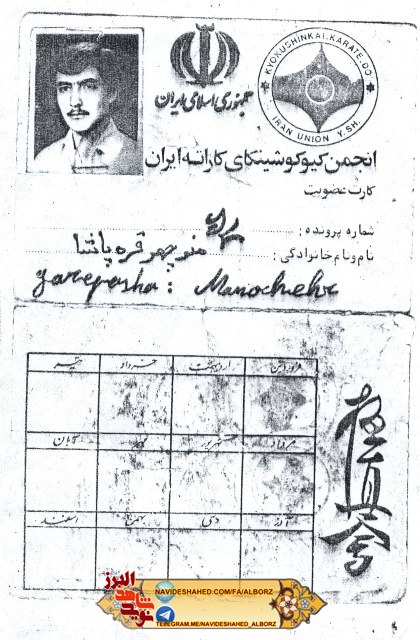 جمهوری اسلامی ایران
KYOKUSHINKAI.KARATE.DO
IRAN UNION Y.SH.
انجمن کیوکوشینکای کاراته ایران
کارت عضویت
شماره پرونده :
نام و نام خانوادگی : منوچهر قره پاشا
garepasha : Manochehr
فروردین اردیبهشت خرداد تیر
مرداد شهریور مهر آبان
آذر دی بهمن اسفند
極真会
نوید شاهد
البرز
NAVIDESHAHED.COM/FA/ALBORZ
TELEGRAM.ME/NAVIDESHAHED_ALBORZ